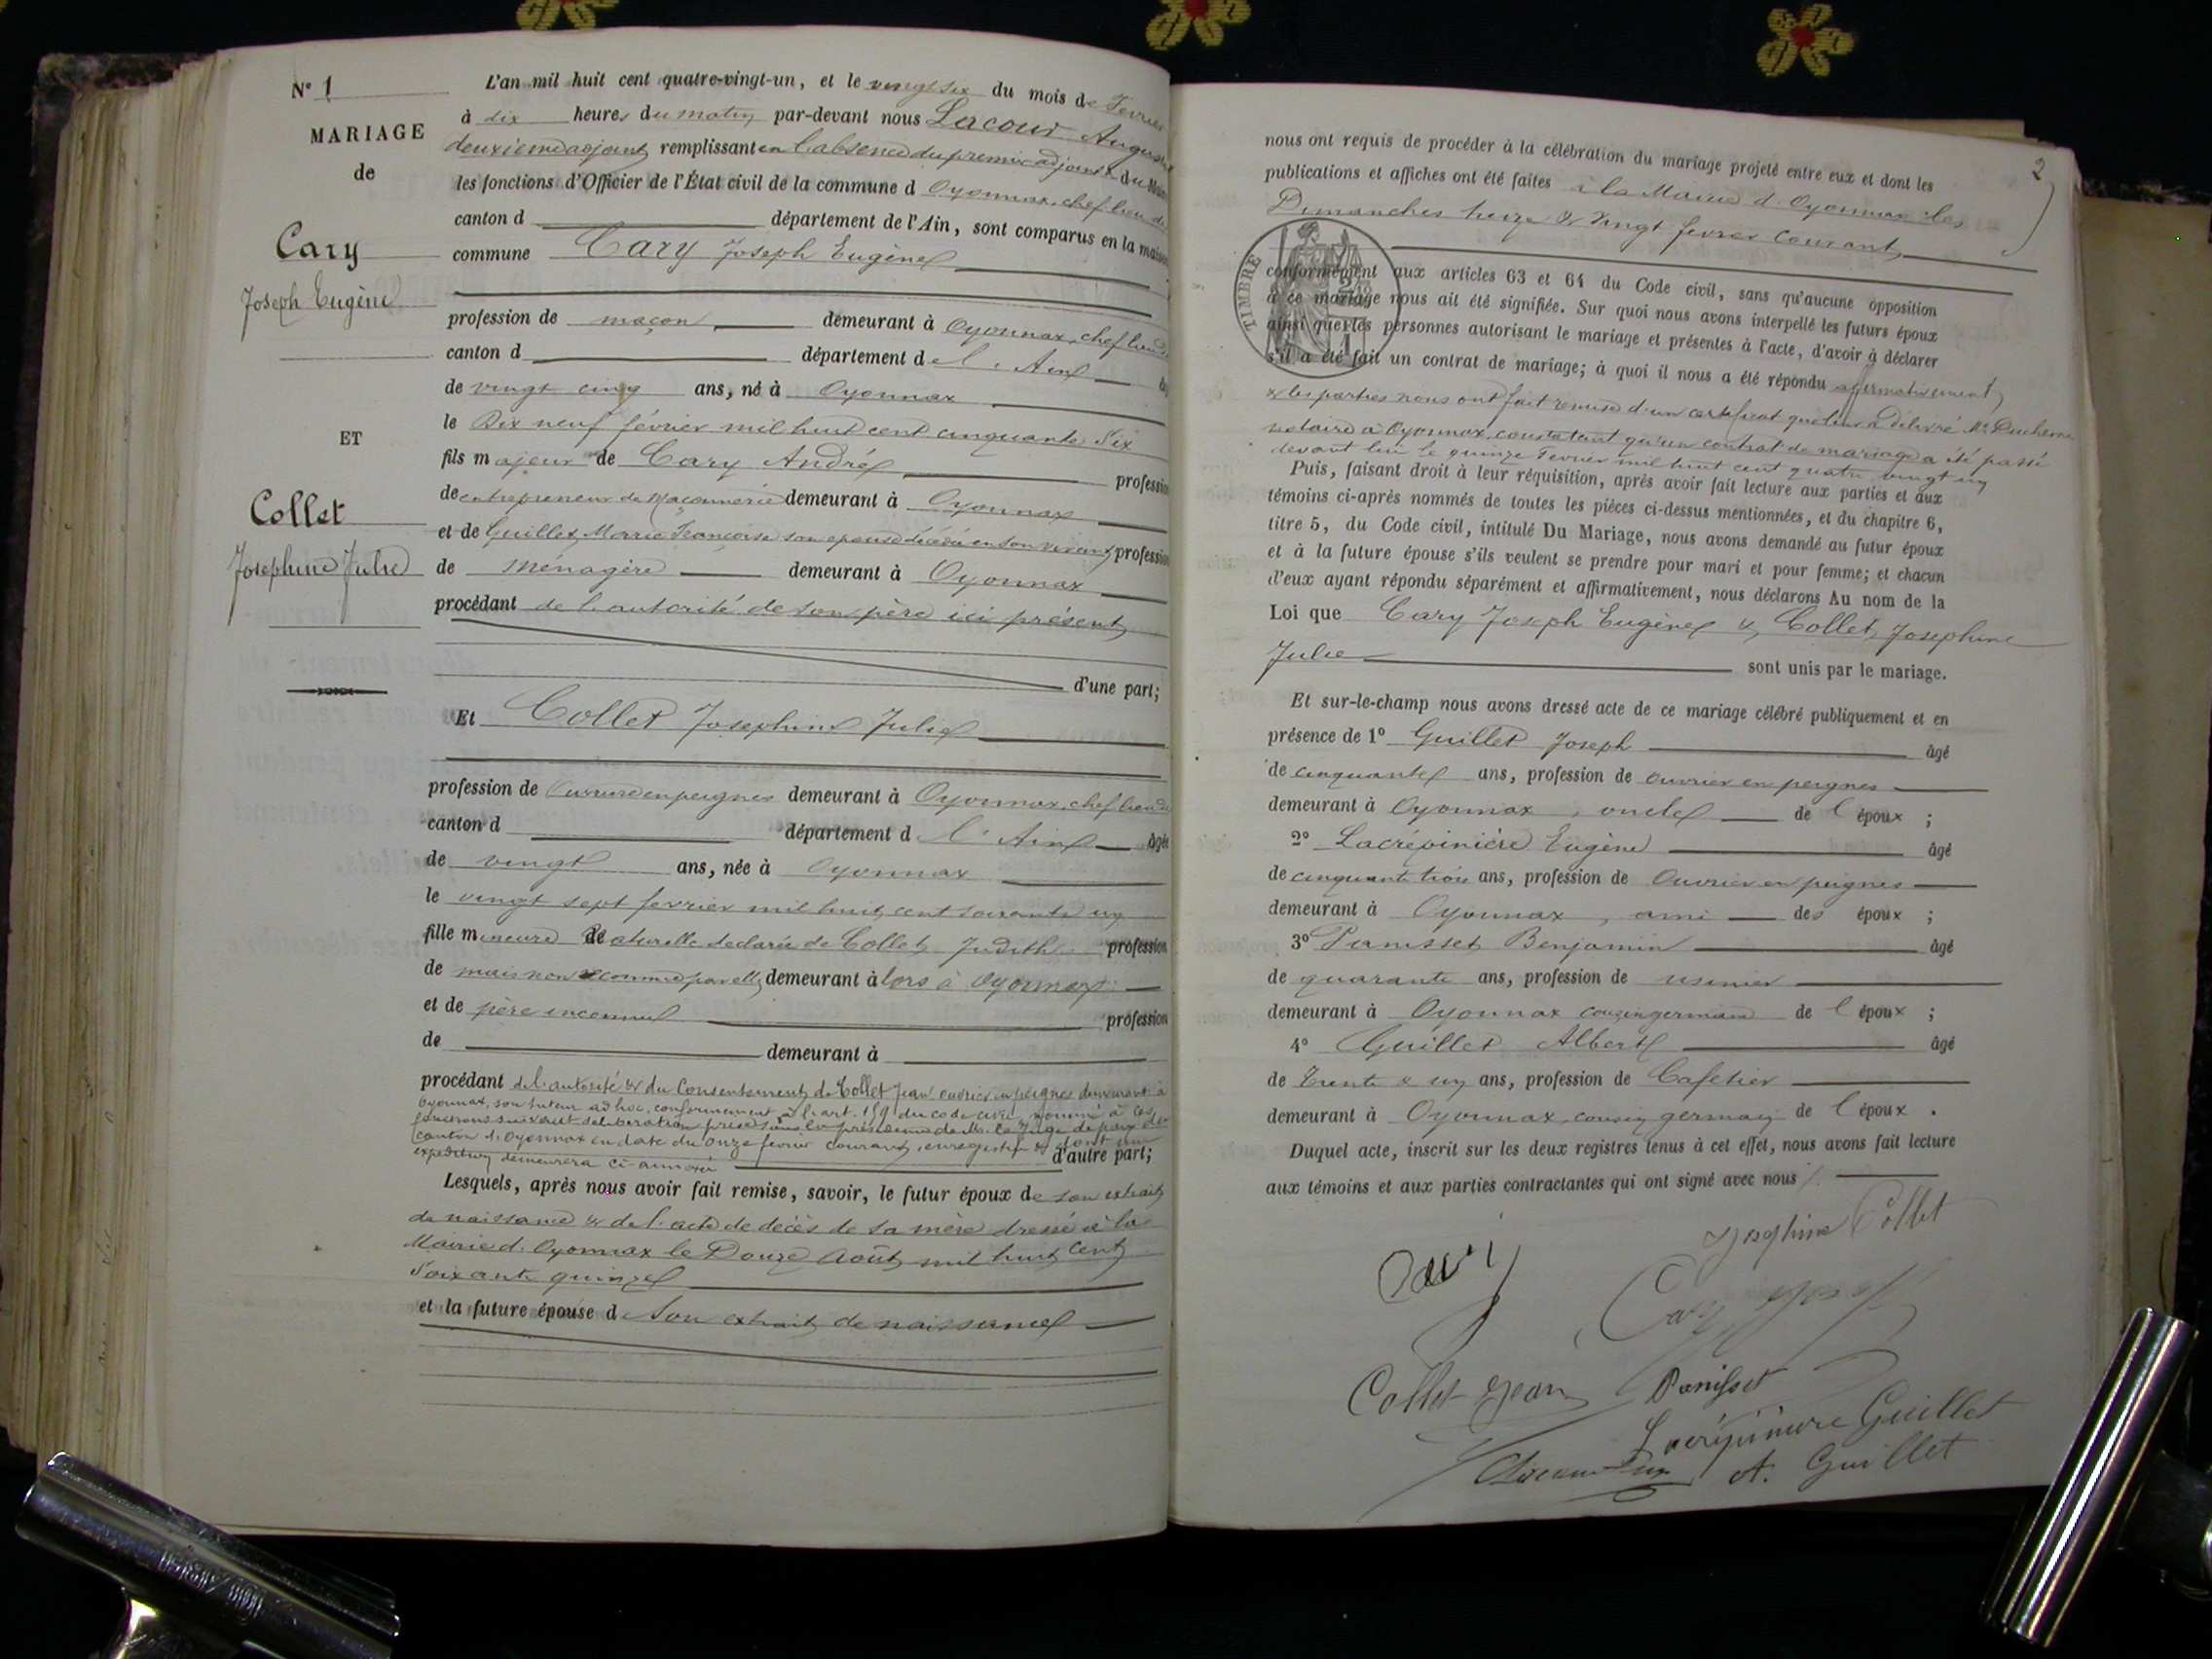 N° 1
MARIAGE
de
Cary
Joseph Eugène
ET
Collet
Josephine Julie
L'an mil huit cent quatre-vingt-un, et le vingt six du mois de Fevrier
à dix heures du matin par-devant nous Lacour Auguste
deuxième adjoint remplissant en l'absence du premier adjoint & du Maire
les fonctions d'Officier de l'État civil de la commune d Oyonnax, chef lieu de
canton d département de l'Ain, sont comparus en la maison
commune Cary Joseph Eugène
profession de maçon demeurant à Oyonnax, chef lieu de
canton d département de l'Ain
de vingt cinq ans, né à Oyonnax
le Dix neuf février mil huit cent cinquante Six
fils majeur de Cary André profession
de entrepreneur de Maçonnerie demeurant à Oyonnax
et de Guillet Marie Françoise son epouse décédée en son vivant profession
de ménagère demeurant à Oyonnax
procédant de l'autorité de son père ici présent
d'une part;
Et Collet Josephine Julie
profession de Ouvrière en peignes demeurant à Oyonnax, chef lieu de
canton d département d l'Ain âgée
de vingt ans, née à Oyonnax
le vingt sept fevrier mil huit cent soixante un
fille mineure naturelle declarée de Collet Judith profession
de mais non reconnue par elle, demeurant à lors à Oyonnax
et de père inconnu profession
de demeurant à
procédant de l'autorité & du Consentement de Collet Jean ouvrier en peignes demeurant à
Oyonnax, son tuteur ad hoc, conformement à l'art. 159 du code civil, nommé à ces
fonctions suivant deliberation prise sous la présidence de M. le Juge de paix du
canton d'Oyonnax en date du onze fevrier courant, enregistré & dont une
expedition demeurera ci-annexée d'autre part;
Lesquels, après nous avoir fait remise, savoir, le futur époux de son extrait
de naissance & de l'acte de décès de sa mère dressé à la
Mairie d'Oyonnax le Douze Août mil huit cent
Soixante quinze
et la future épouse d Son extrait de naissance
2
nous ont requis de procéder à la célébration du mariage projeté entre eux et dont les
publications et affiches ont été faites à la Mairie d'Oyonnax les
Dimanches treize & vingt fevrier Courant
TIMBRE
conformément aux articles 63 et 64 du Code civil, sans qu'aucune opposition
à ce mariage nous ait été signifiée. Sur quoi nous avons interpellé les futurs époux
ainsi que les personnes autorisant le mariage et présentes à l'acte, d'avoir à déclarer
s'il a été fait un contrat de mariage; à quoi il nous a été répondu affirmativement,
& les parties nous ont fait remise d'un certificat que leur a délivré Me
notaire à Oyonnax, constatant qu'un contrat de mariage a été passé
devant lui le quinze Fevrier mil huit cent quatre vingt un
Puis, faisant droit à leur réquisition, après avoir fait lecture aux parties et aux
témoins ci-après nommés de toutes les pièces ci-dessus mentionnées, et du chapitre 6,
titre 5, du Code civil, intitulé Du Mariage, nous avons demandé au futur époux
et à la future épouse s'ils veulent se prendre pour mari et pour femme; et chacun
d'eux ayant répondu séparément et affirmativement, nous déclarons Au nom de la
Loi que Cary Joseph Eugène & Collet Josephine
Julie sont unis par le mariage.
Et sur-le-champ nous avons dressé acte de ce mariage célébré publiquement et en
présence de 1° Guillet Joseph âgé
de cinquante ans, profession de ouvrier en peignes
demeurant à Oyonnax, oncle de l époux ;
2° Lacrépinière Eugène âgé
de cinquante trois ans, profession de Ouvrier en peignes
demeurant à Oyonnax, ami des époux ;
3° Panisset Benjamin âgé
de quarante ans, profession de usinier
demeurant à Oyonnax cousin germain de l époux ;
4° Guillet Albert âgé
de Trente & un ans, profession de Cafetier
demeurant à Oyonnax, cousin germain de l époux .
Duquel acte, inscrit sur les deux registres tenus à cet effet, nous avons fait lecture
aux témoins et aux parties contractantes qui ont signé avec nous
Josephine Collet
Cary
Cary Joseph
Collet Jean Panisset
Lacrépinière Guillet
A. Guillet